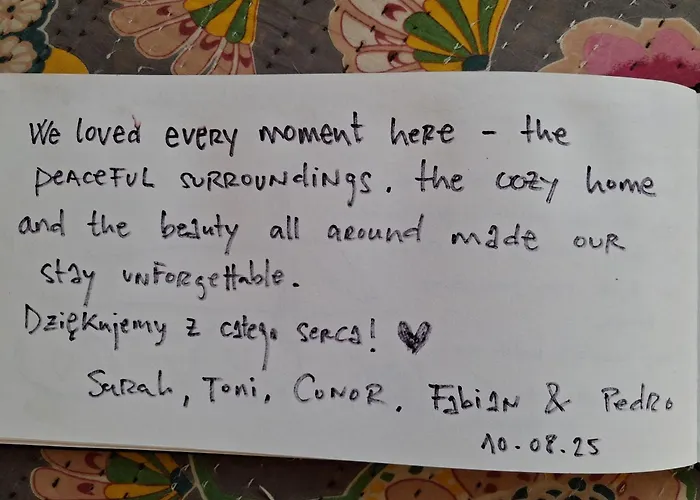 We loved every moment here - the
peaceful surroundings. the cozy home
and the beauty all around made our
stay unforgettable.
Dziękujemy z całego serca! ♥
Sarah, Toni, Conor, Fabian & Pedro
10.08.25